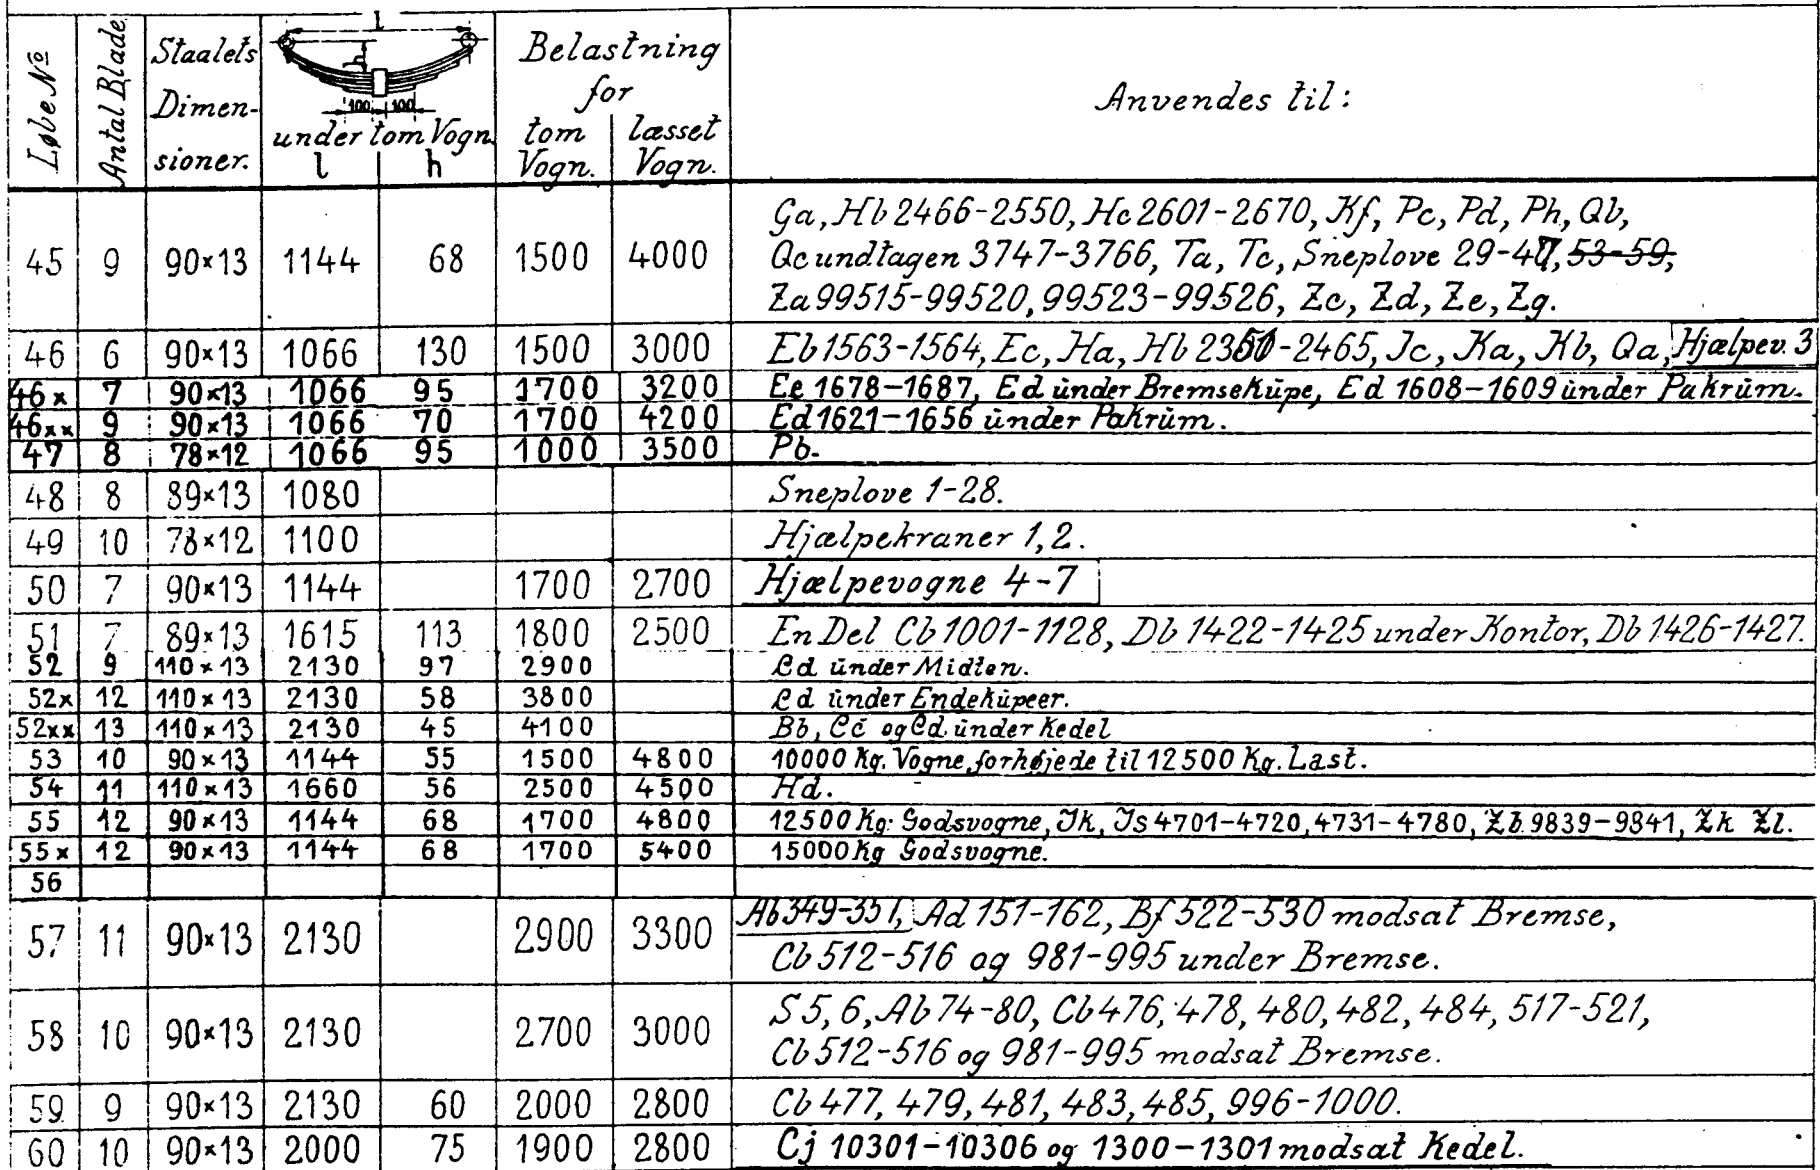 Løbe No
Antal Blade
Staalets Dimensioner.
L
h
100 100
under tom Vogn.
l h
Belastning
for
tom Vogn. læsset Vogn.
Anvendes til:
Ga, Hb 2466-2550, Hc 2601-2670, Kf, Pc, Pd, Ph, Qb,
45 9 90×13 1144 68 1500 4000 Qc undtagen 3747-3766, Ta, Tc, Sneplove 29-47, 53-59,
Za 99515-99520, 99523-99526, Zc, Zd, Ze, Zg.
46 6 90×13 1066 130 1500 3000 Eb 1563-1564, Ec, Ha, Hb -2465, Jc, Ka, Kb, Qa, Hjælpev. 3
46x 7 90×13 1066 95 1700 3200 Ee 1678-1687, Ed under Bremseküpe, Ed 1608-1609 under Pakrüm.
46xx 9 90×13 1066 70 1700 4200 Ed 1621-1656 ünder Pakrüm.
47 8 78×12 1066 95 1000 3500 Pb.
48 8 89×13 1080 Sneplove 1-28.
49 10 78×12 1100 Hjælpekraner 1, 2.
50 7 90×13 1144 1700 2700 Hjælpevogne 4-7
51 7 89×13 1615 113 1800 2500 En Del Cb 1001-1128, Db 1422-1425 under Kontor, Db 1426-1427.
52 9 110×13 2130 97 2900 Cd ünder Midten.
52x 12 110×13 2130 58 3800 Cd ünder Endeküpeer.
52xx 13 110×13 2130 45 4100 Bb, Cc og Cd ünder Kedel
53 10 90×13 1144 55 1500 4800 10000 Kg. Vogne, forhøjede til 12500 Kg. Last.
54 11 110×13 1660 56 2500 4500 Hd.
55 12 90×13 1144 68 1700 4800 12500 Kg. Godsvogne, Jk, Js 4701-4720, 4731-4780, Zb 9839-9841, Zk Zl.
55x 12 90×13 1144 68 1700 5400 15000 Kg Godsvogne.
56
57 11 90×13 2130 2900 3300 Ab 349-351, Ad 151-162, Bf 522-530 modsat Bremse,
Cb 512-516 og 981-995 under Bremse.
58 10 90×13 2130 2700 3000 S 5, 6, Ab 74-80, Cb 476, 478, 480, 482, 484, 517-521,
Cb 512-516 og 981-995 modsat Bremse.
59 9 90×13 2130 60 2000 2800 Cb 477, 479, 481, 483, 485, 996-1000.
60 10 90×13 2000 75 1900 2800 Cj 10301-10306 og 1300-1301 modsat Kedel.